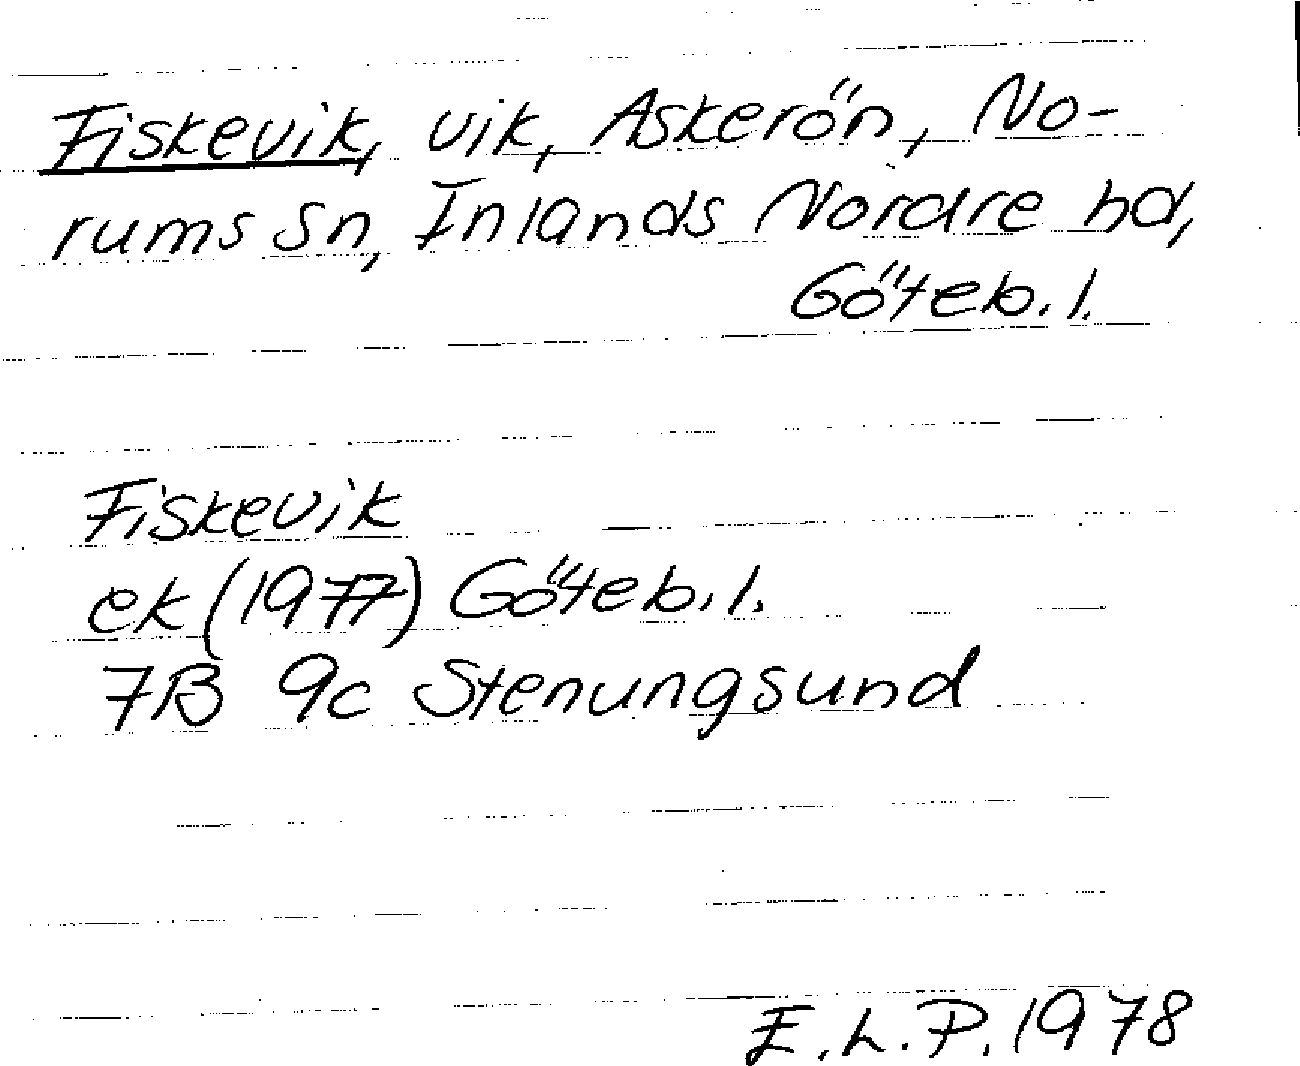 Fiskevik, vik, Askerön, No-
rums sn, Inlands Nordre hd,
Göteb. l.
Fiskevik
ek (1977) Göteb. l.
7B 9c Stenungsund
E.L.P. 1978